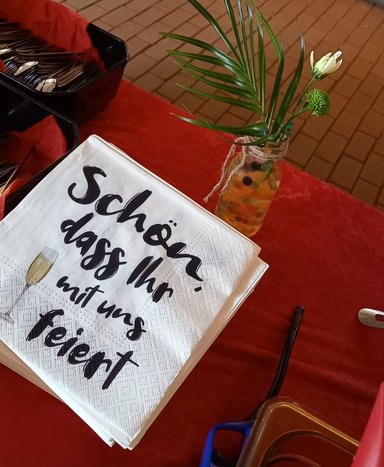 Schön,
dass Ihr
mit uns
feiert